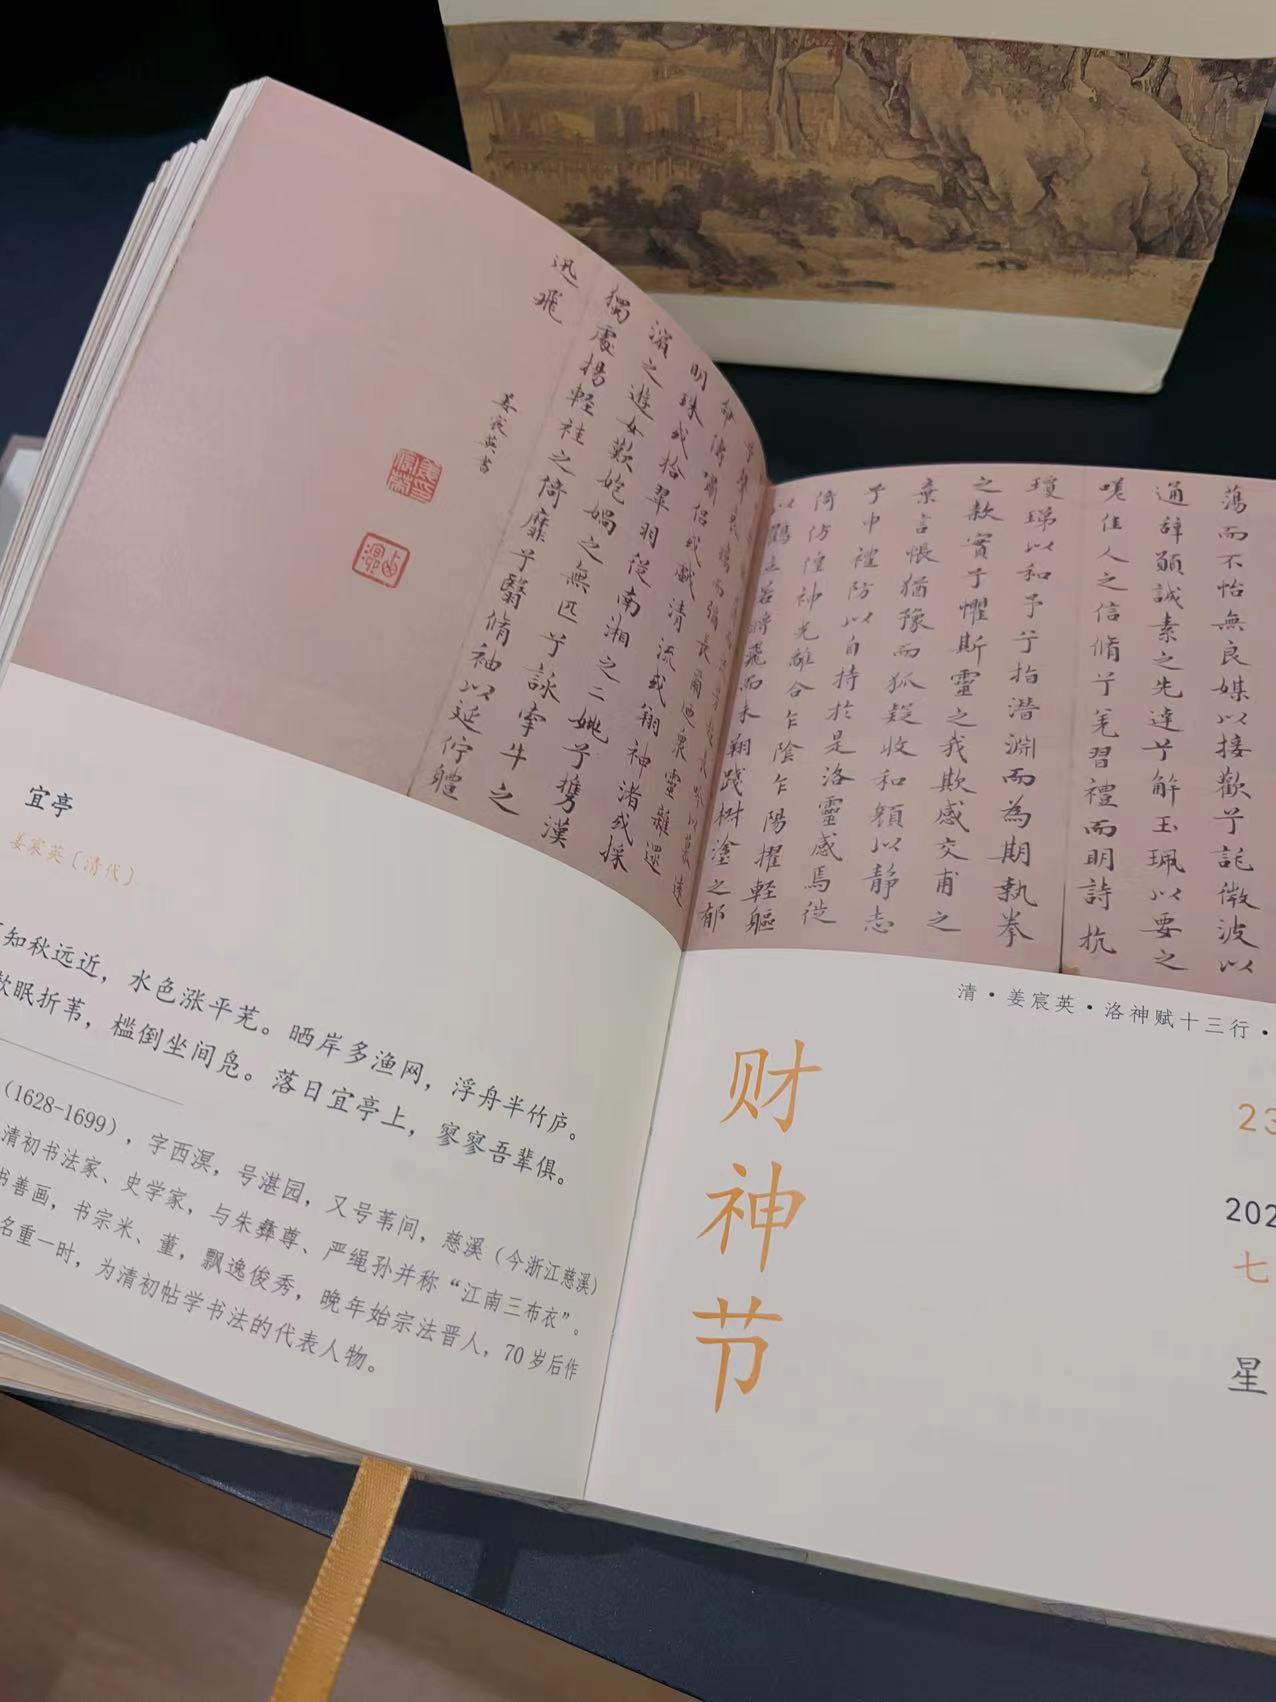 蕩而不怡無良媒以接歡兮託微波以
通辭願誠素之先達兮解玉珮以要之
嗟佳人之信脩兮羌習禮而明詩抗
瓊珶以和予兮指潛淵而為期執拳
之款實兮懼斯靈之我欺感交甫之
棄言悵猶豫而狐疑收和顏以靜志
兮申禮防以自持於是洛靈感焉徙
倚仿偟神光離合乍陰乍陽擢輕軀
以鶴立若將飛而未翔踐椒塗之郁
而流芳超長吟以慕遠
聲哀厲而彌長爾迺衆靈雜遝
命儔嘯侶或戲清流或翔神渚或採
明珠或拾翠羽從南湘之二姚兮攜漢
濱之遊女歎匏媧之無匹兮詠牽牛之
獨處揚輕袿之倚靡兮翳脩袖以延佇軆
迅飛
姜宸英書
宜亭
姜宸英〔清代〕
知秋远近，水色涨平芜。晒岸多渔网，浮舟半竹庐。
眠折苇，槛倒坐间凫。落日宜亭上，寥寥吾辈俱。
(1628-1699)，字西溟，号湛园，又号苇间，慈溪（今浙江慈溪）
清初书法家、史学家，与朱彝尊、严绳孙并称“江南三布衣”。
书善画，书宗米、董，飘逸俊秀，晚年始宗法晋人，70岁后作
名重一时，为清初帖学书法的代表人物。
清·姜宸英·洛神赋十三行·
财神节
23
202
七
星